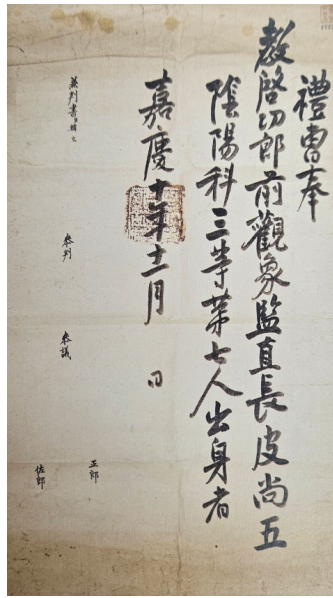 禮曺奉
教啓功郎前觀象監直長皮尚五
陰陽科三等第七人出身者
嘉慶十年十一月 日
兼判書臣
叅判
叅議
正郎
佐郎